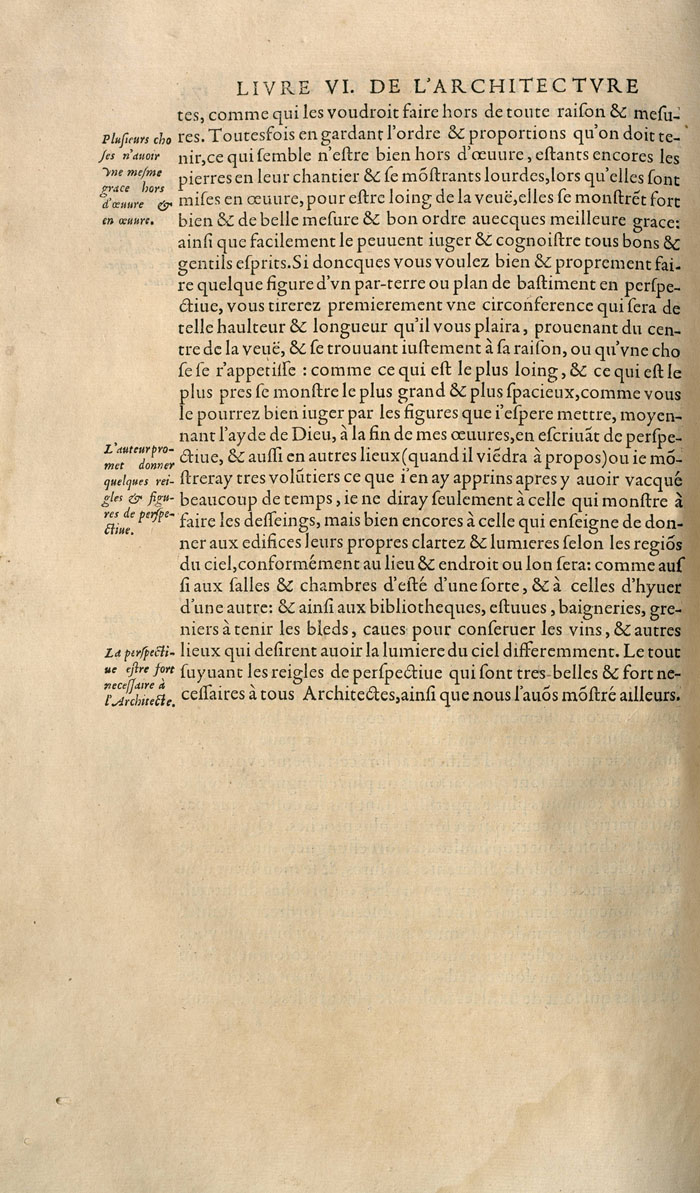 LIVRE VI. DE L'ARCHITECTVRE
tes, comme qui les voudroit faire hors de toute raiſon & meſu-
res. Toutesfois en gardant l'ordre & proportions qu'on doit te-
nir,ce qui ſemble n'eſtre bien hors d'œuure, eſtants encores les
pierres en leur chantier & ſe mõſtrants lourdes,lors qu'elles ſont
miſes en œuure, pour eſtre loing de la veuë,elles ſe monſtrẽt fort
bien & de belle meſure & bon ordre auecques meilleure grace:
ainſi que facilement le peuuent iuger & cognoiſtre tous bons &
gentils eſprits.Si doncques vous voulez bien & proprement fai-
re quelque figure d'vn par-terre ou plan de baſtiment en perſpe-
ctiue, vous tirerez premierement vne circonference qui ſera de
telle haulteur & longueur qu'il vous plaira, prouenant du cen-
tre de la veuë, & ſe trouuant iuſtement à ſa raiſon, ou qu'vne cho
ſe ſe r'appetiſſe : comme ce qui eſt le plus loing, & ce qui eſt le
plus pres ſe monſtre le plus grand & plus ſpacieux,comme vous
le pourrez bien iuger par les figures que i'eſpere mettre, moyen-
nant l'ayde de Dieu, à la fin de mes œuures,en eſcriuãt de perſpe-
ctiue, & auſſi en autres lieux (quand il viẽdra à propos) ou ie mõ-
ſtreray tres volũtiers ce que i'en ay apprins apres y auoir vacqué
beaucoup de temps, ie ne diray ſeulement à celle qui monſtre à
faire les deſſeings, mais bien encores à celle qui enſeigne de don-
ner aux edifices leurs propres clartez & lumieres ſelon les regiõs
du ciel,conformément au lieu & endroit ou lon ſera: comme auſ
ſi aux ſalles & chambres d'eſté d'vne ſorte, & à celles d'hyuer
d'vne autre: & ainſi aux bibliotheques, eſtuues, baigneries, gre-
niers à tenir les bleds, caues pour conſeruer les vins, & autres
lieux qui deſirent auoir la lumiere du ciel differemment. Le tout
ſuyuant les reigles de perſpectiue qui ſont tres-belles & fort ne-
ceſſaires à tous Architectes,ainſi que nous l'auõs mõſtré ailleurs.
Pluſieurs cho
ſes n'auoir
vne meſme
grace hors
d'œuure &
en œuure.
L'auteur pro-
met donner
quelques rei-
gles & figu-
res de perſpe-
ctiue.
La perſpecti-
ue eſtre fort
neceſſaire à
l'Architecte.